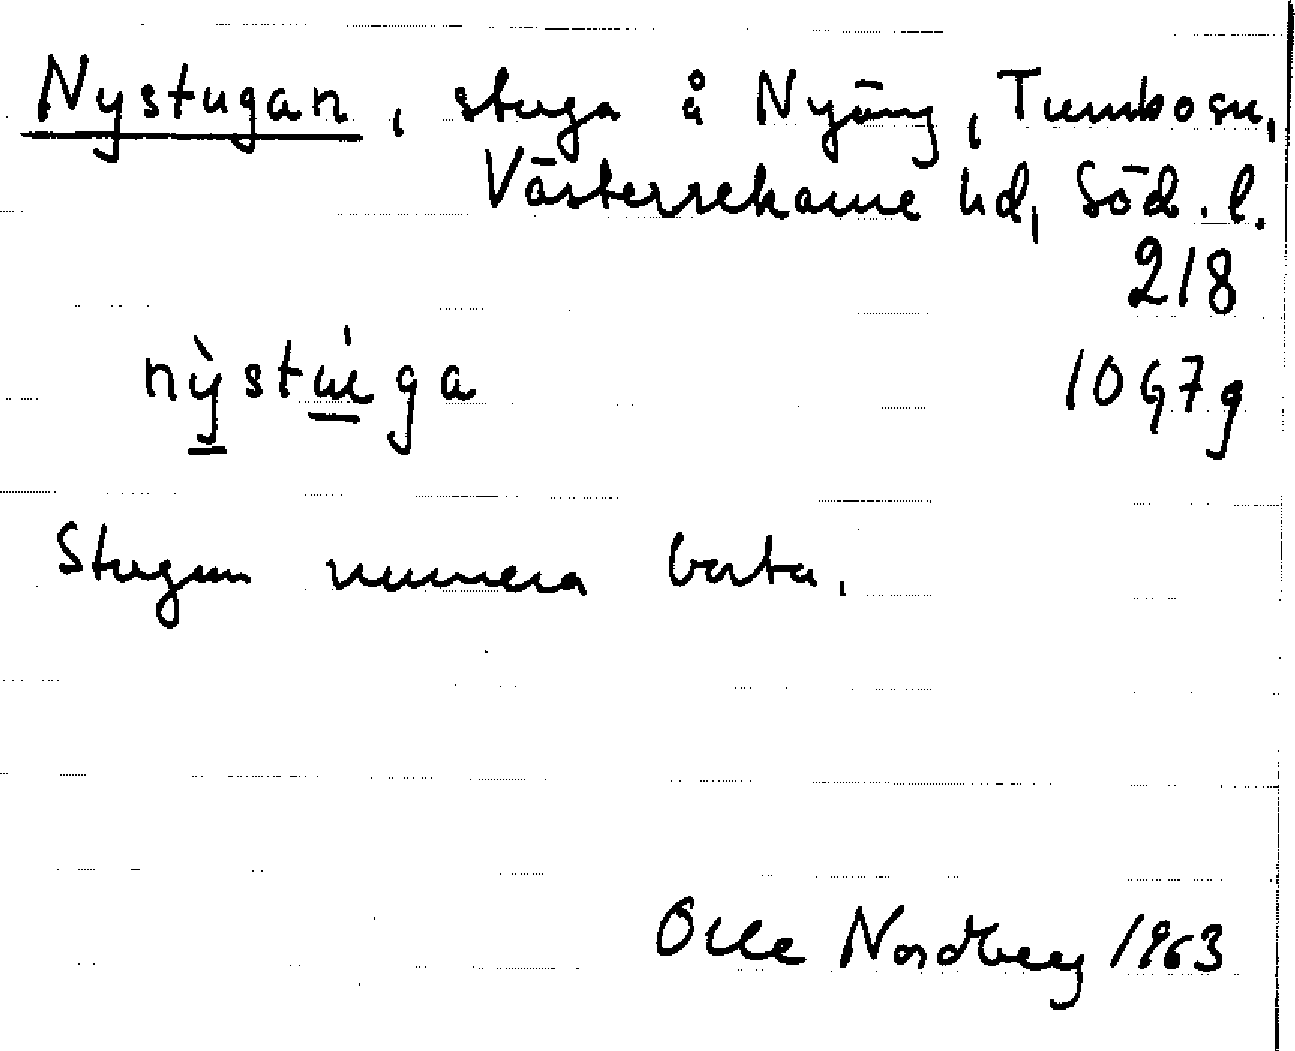 Nystugan, stuga å Nyäng, Tumbo sn,
Västerrekarne hd, Söd. l.
218
nỳstúga
10G7g
Stugan numera borta.
Olle Nordberg 1963